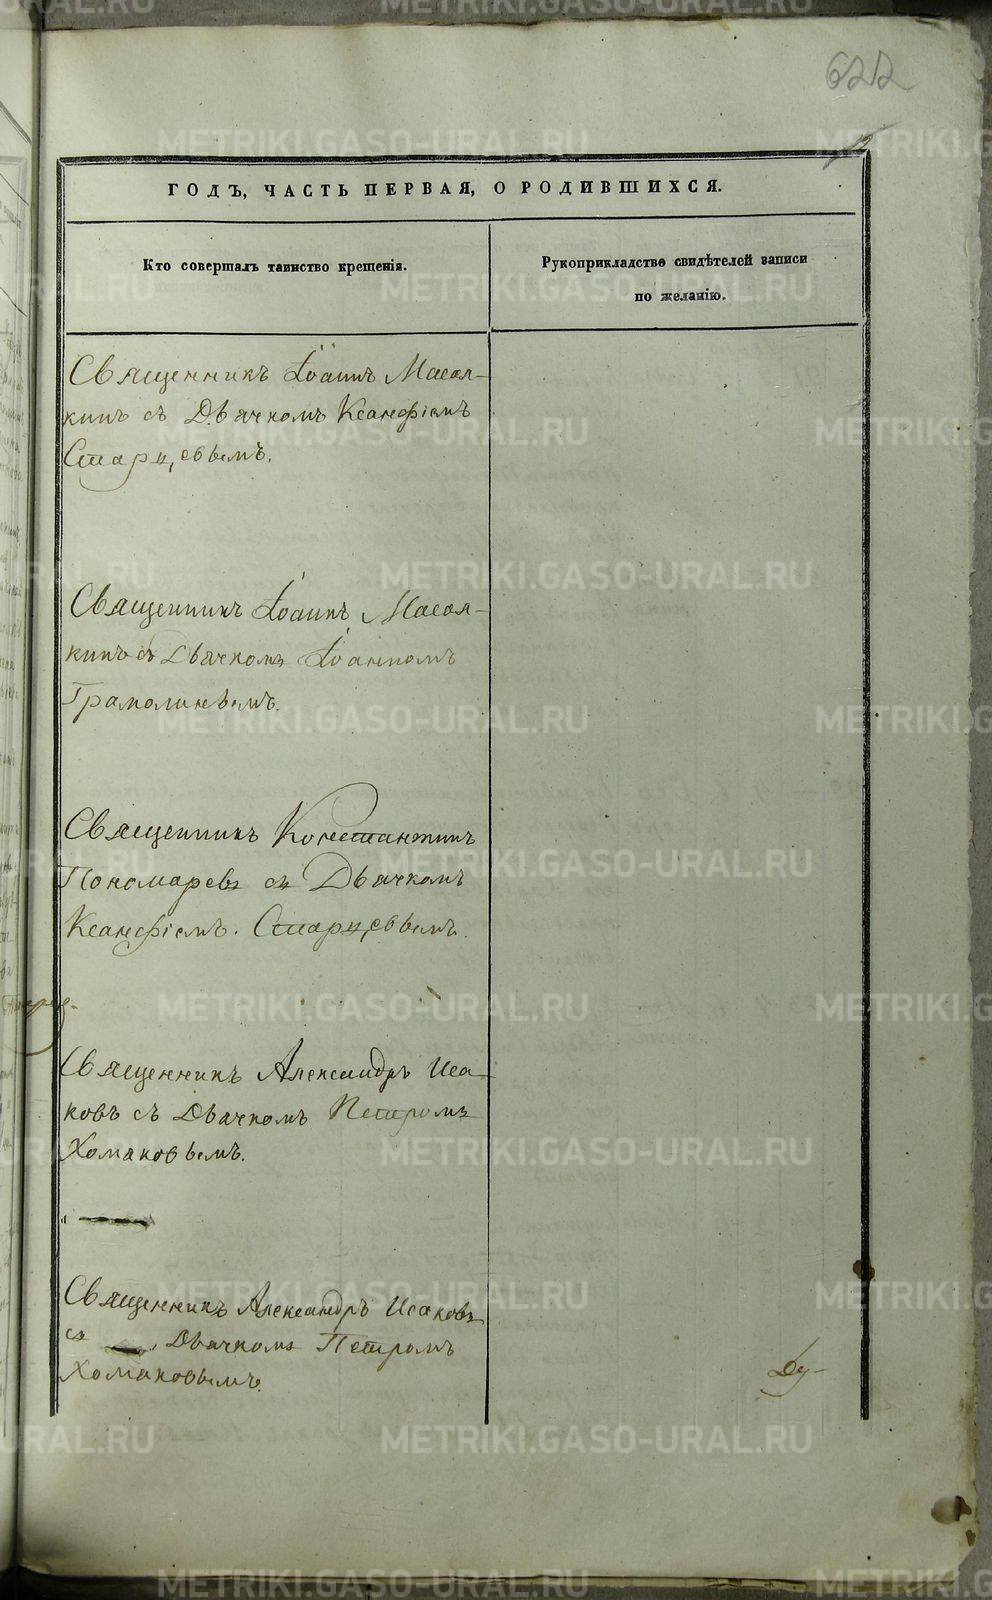 622
ГОДЪ, ЧАСТЬ ПЕРВАЯ, О РОДИВШИХСЯ.
Кто совершалъ таинство крещенія.
Рукоприкладство свидѣтелей записи
по желанію.
Священникъ Іоаннъ Масал-
кинъ съ Дьячкомъ Ксанфіемъ
Старцевымъ.
Священникъ Іоаннъ Масал-
кинъ съ Дьячкомъ Іоанномъ
Грамолинымъ.
Священникъ Константинъ
Пономаревъ съ Дьячкомъ
Ксанфіемъ. Старцевымъ.
Священникъ Александръ Иса-
ковъ съ Дьячкомъ Петромъ
Хомяковымъ.
Священникъ Александръ Исаковъ
съ Дьячкомъ Петромъ
Хомяковымъ.
Ду-
METRIKI.GASO-URAL.RU